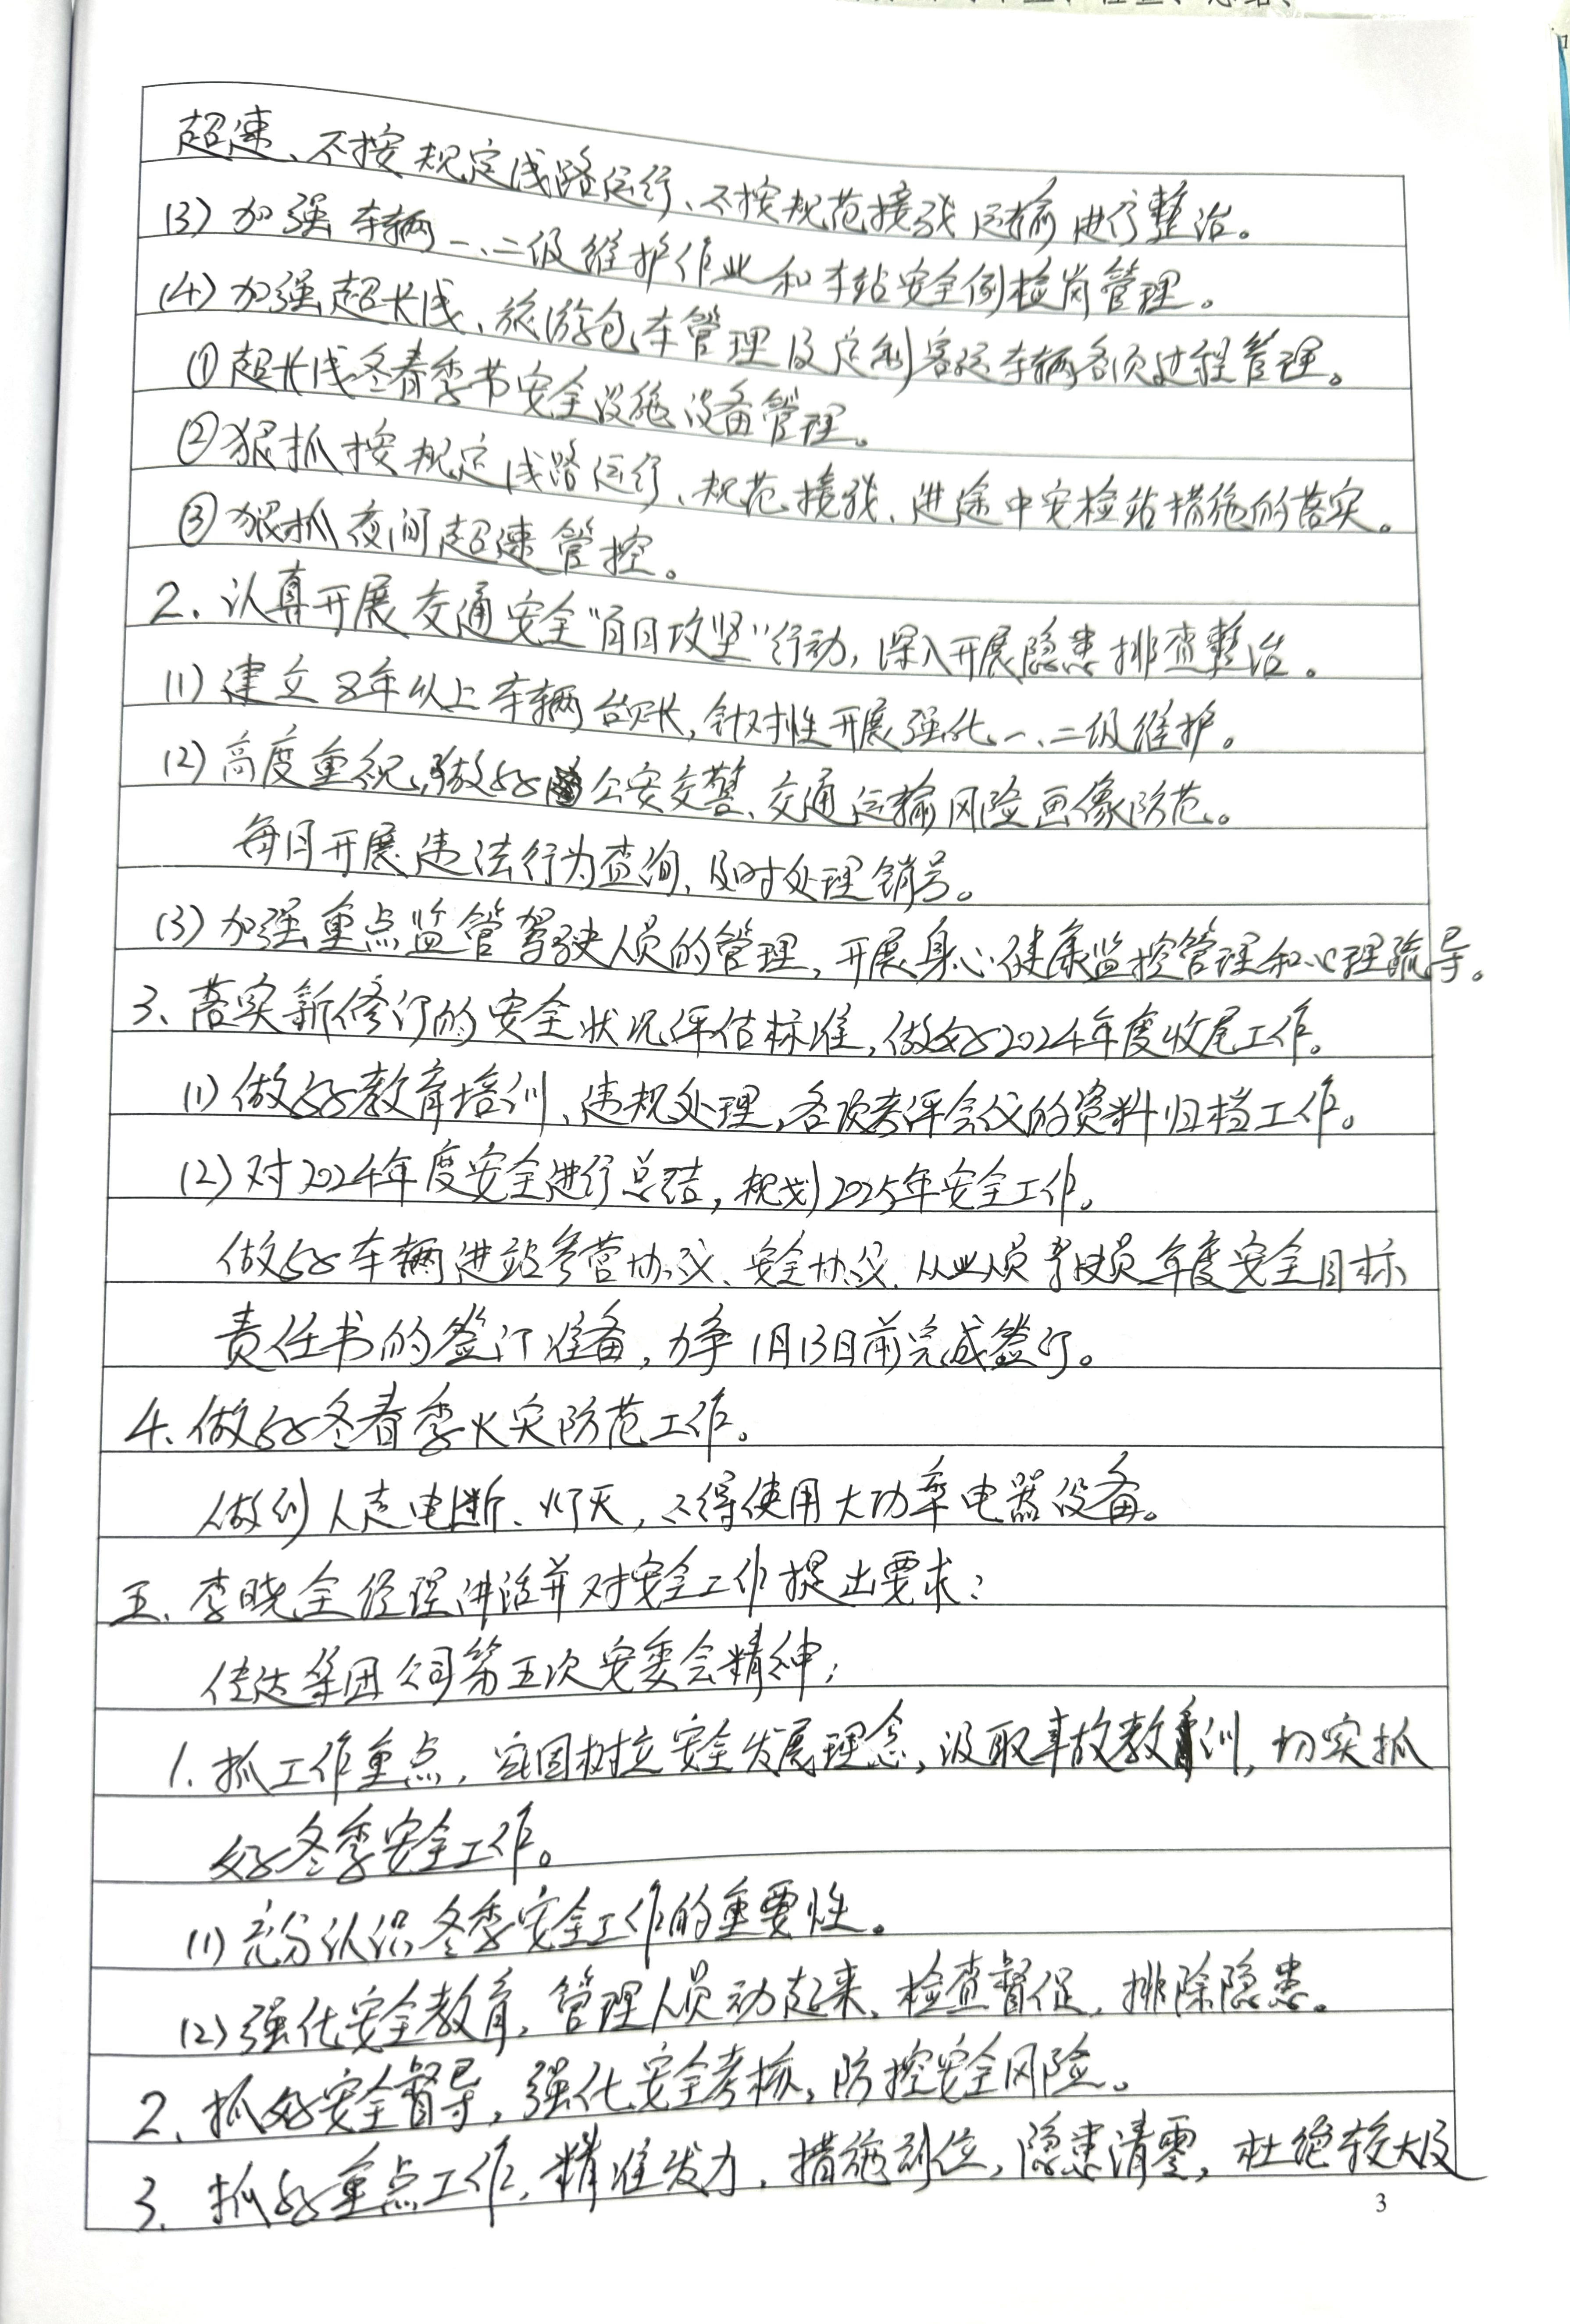 超速、不按规定线路运行、不按规范接驳运输进行整治。
(3) 加强车辆一、二级维护作业和本站安全例检岗管理。
(4) 加强超长线、旅游包车管理及定制客运车辆各项过程管理。
① 超长线冬春季节安全设施设备管理。
② 狠抓按规定线路运行、规范接驳、进途中安检站措施的落实。
③ 狠抓夜间超速管控。
2、认真开展交通安全“百日攻坚”行动，深入开展隐患排查整治。
(1) 建立8年以上车辆台账，针对性开展强化一、二级维护。
(2) 高度重视，做好公安交警、交通运输风险画像防范。
每月开展违法行为查询，及时处理销号。
(3) 加强重点监管驾驶人员的管理，开展身心健康监控管理和心理疏导。
3、落实新修订的安全状况评估标准，做好2024年度收尾工作。
(1) 做好教育培训、违规处理，各次考评会议的资料归档工作。
(2) 对2024年度安全进行总结，规划2025年安全工作。
做好车辆进站参营协议、安全协议、从业人员年度安全目标
责任书的签订准备，力争1月13日前完成签订。
4、做好冬春季火灾防范工作。
做到人走电断、灯灭，不得使用大功率电器设备。
五、李晓全经理讲话并对安全工作提出要求：
传达集团公司第五次安委会精神；
1、抓工作重点，牢固树立安全发展理念，汲取事故教训，切实抓
好冬季安全工作。
(1) 充分认识冬季安全工作的重要性。
(2) 强化安全教育，管理人员动起来，检查督促，排除隐患。
2、抓好安全督导，强化安全考核，防控安全风险。
3、抓好重点工作，精准发力，措施到位，隐患清零，杜绝较大及
3